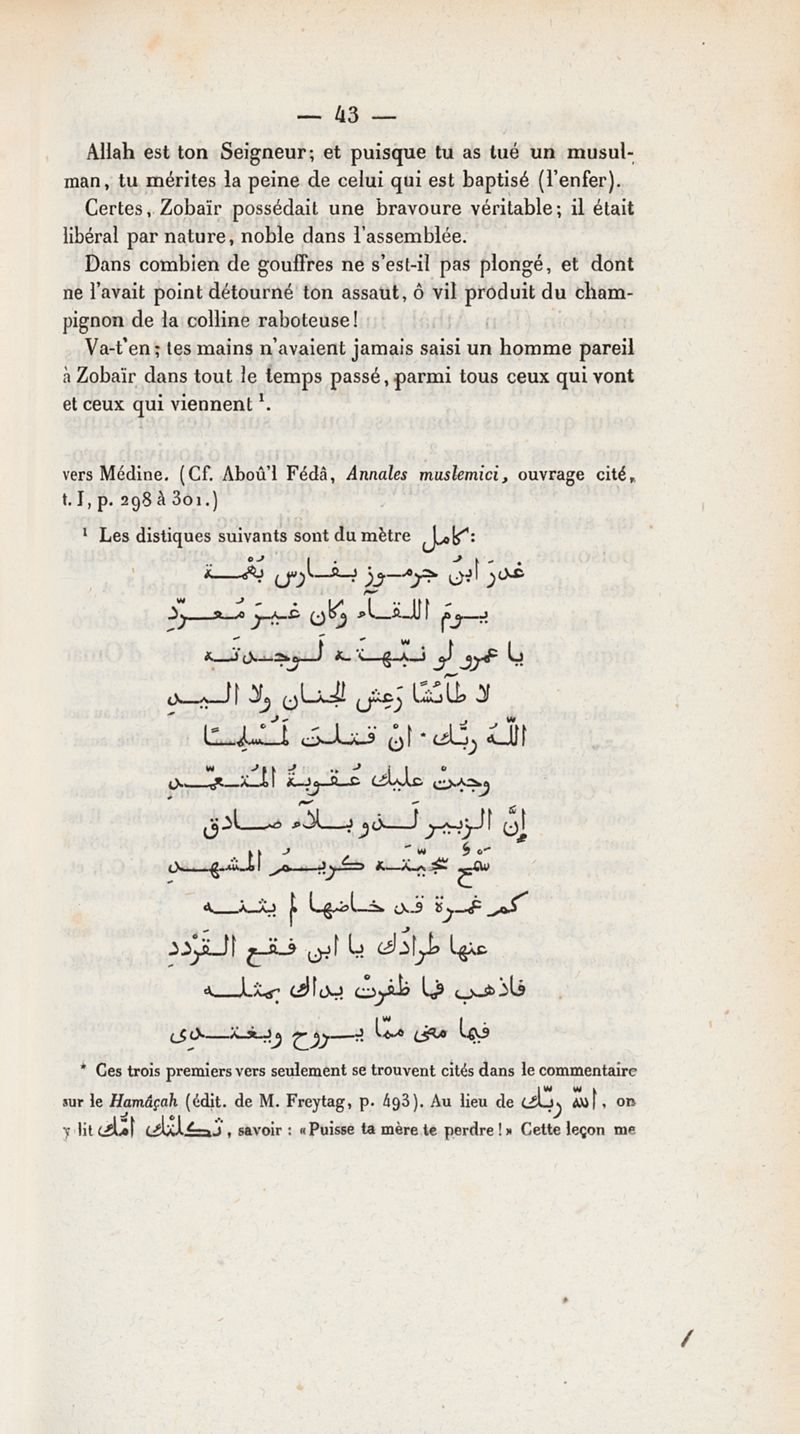 — 43 —
Allah est ton Seigneur; et puisque tu as tué un musul-
man, tu mérites la peine de celui qui est baptisé (l'enfer).
Certes, Zobaïr possédait une bravoure véritable; il était
libéral par nature, noble dans l'assemblée.
Dans combien de gouffres ne s'est-il pas plongé, et dont
ne l'avait point détourné ton assaut, ô vil produit du cham-
pignon de la colline raboteuse!
Va-t'en; tes mains n'avaient jamais saisi un homme pareil
à Zobaïr dans tout le temps passé, parmi tous ceux qui vont
et ceux qui viennent ¹.
vers Médine. (Cf. Aboû'l Fédâ, Annales muslemici, ouvrage cité,
t. I, p. 298 à 301.)
¹ Les distiques suivants sont du mètre كامل:
غدرَ ابنُ جرموز بفارس بُهْمة
يومَ اللقآء وكان غيرَ مُعرّدِ
يا عمرو لو نبّهتَه لوجدتَه
لا طائشًا رَعِش الجنان ولا اليد
اللّٰهُ ربُّك * انْ قتلتَ لمُسْلِمًا
وجبتْ عليك عُقوبةُ المُتعمّدِ
إنَّ الزبير لَذو بلآء صادق
سَمْحٌ سجيّتَه كريمُ المشهد
كم غمرة قد خاضها لم يثنه
عنها طِرادُك يا ابن فقع القَرْدد
فاذهب فما ظفرتْ يداك بمثله
فيما مضى ممّا يروح ويغتدى
* Ces trois premiers vers seulement se trouvent cités dans le commentaire
sur le Hamâçah (édit. de M. Freytag, p. 493). Au lieu de اللّٰه ربّك, on
y lit ثكلتْك امّك, savoir : «Puisse ta mère te perdre!» Cette leçon me